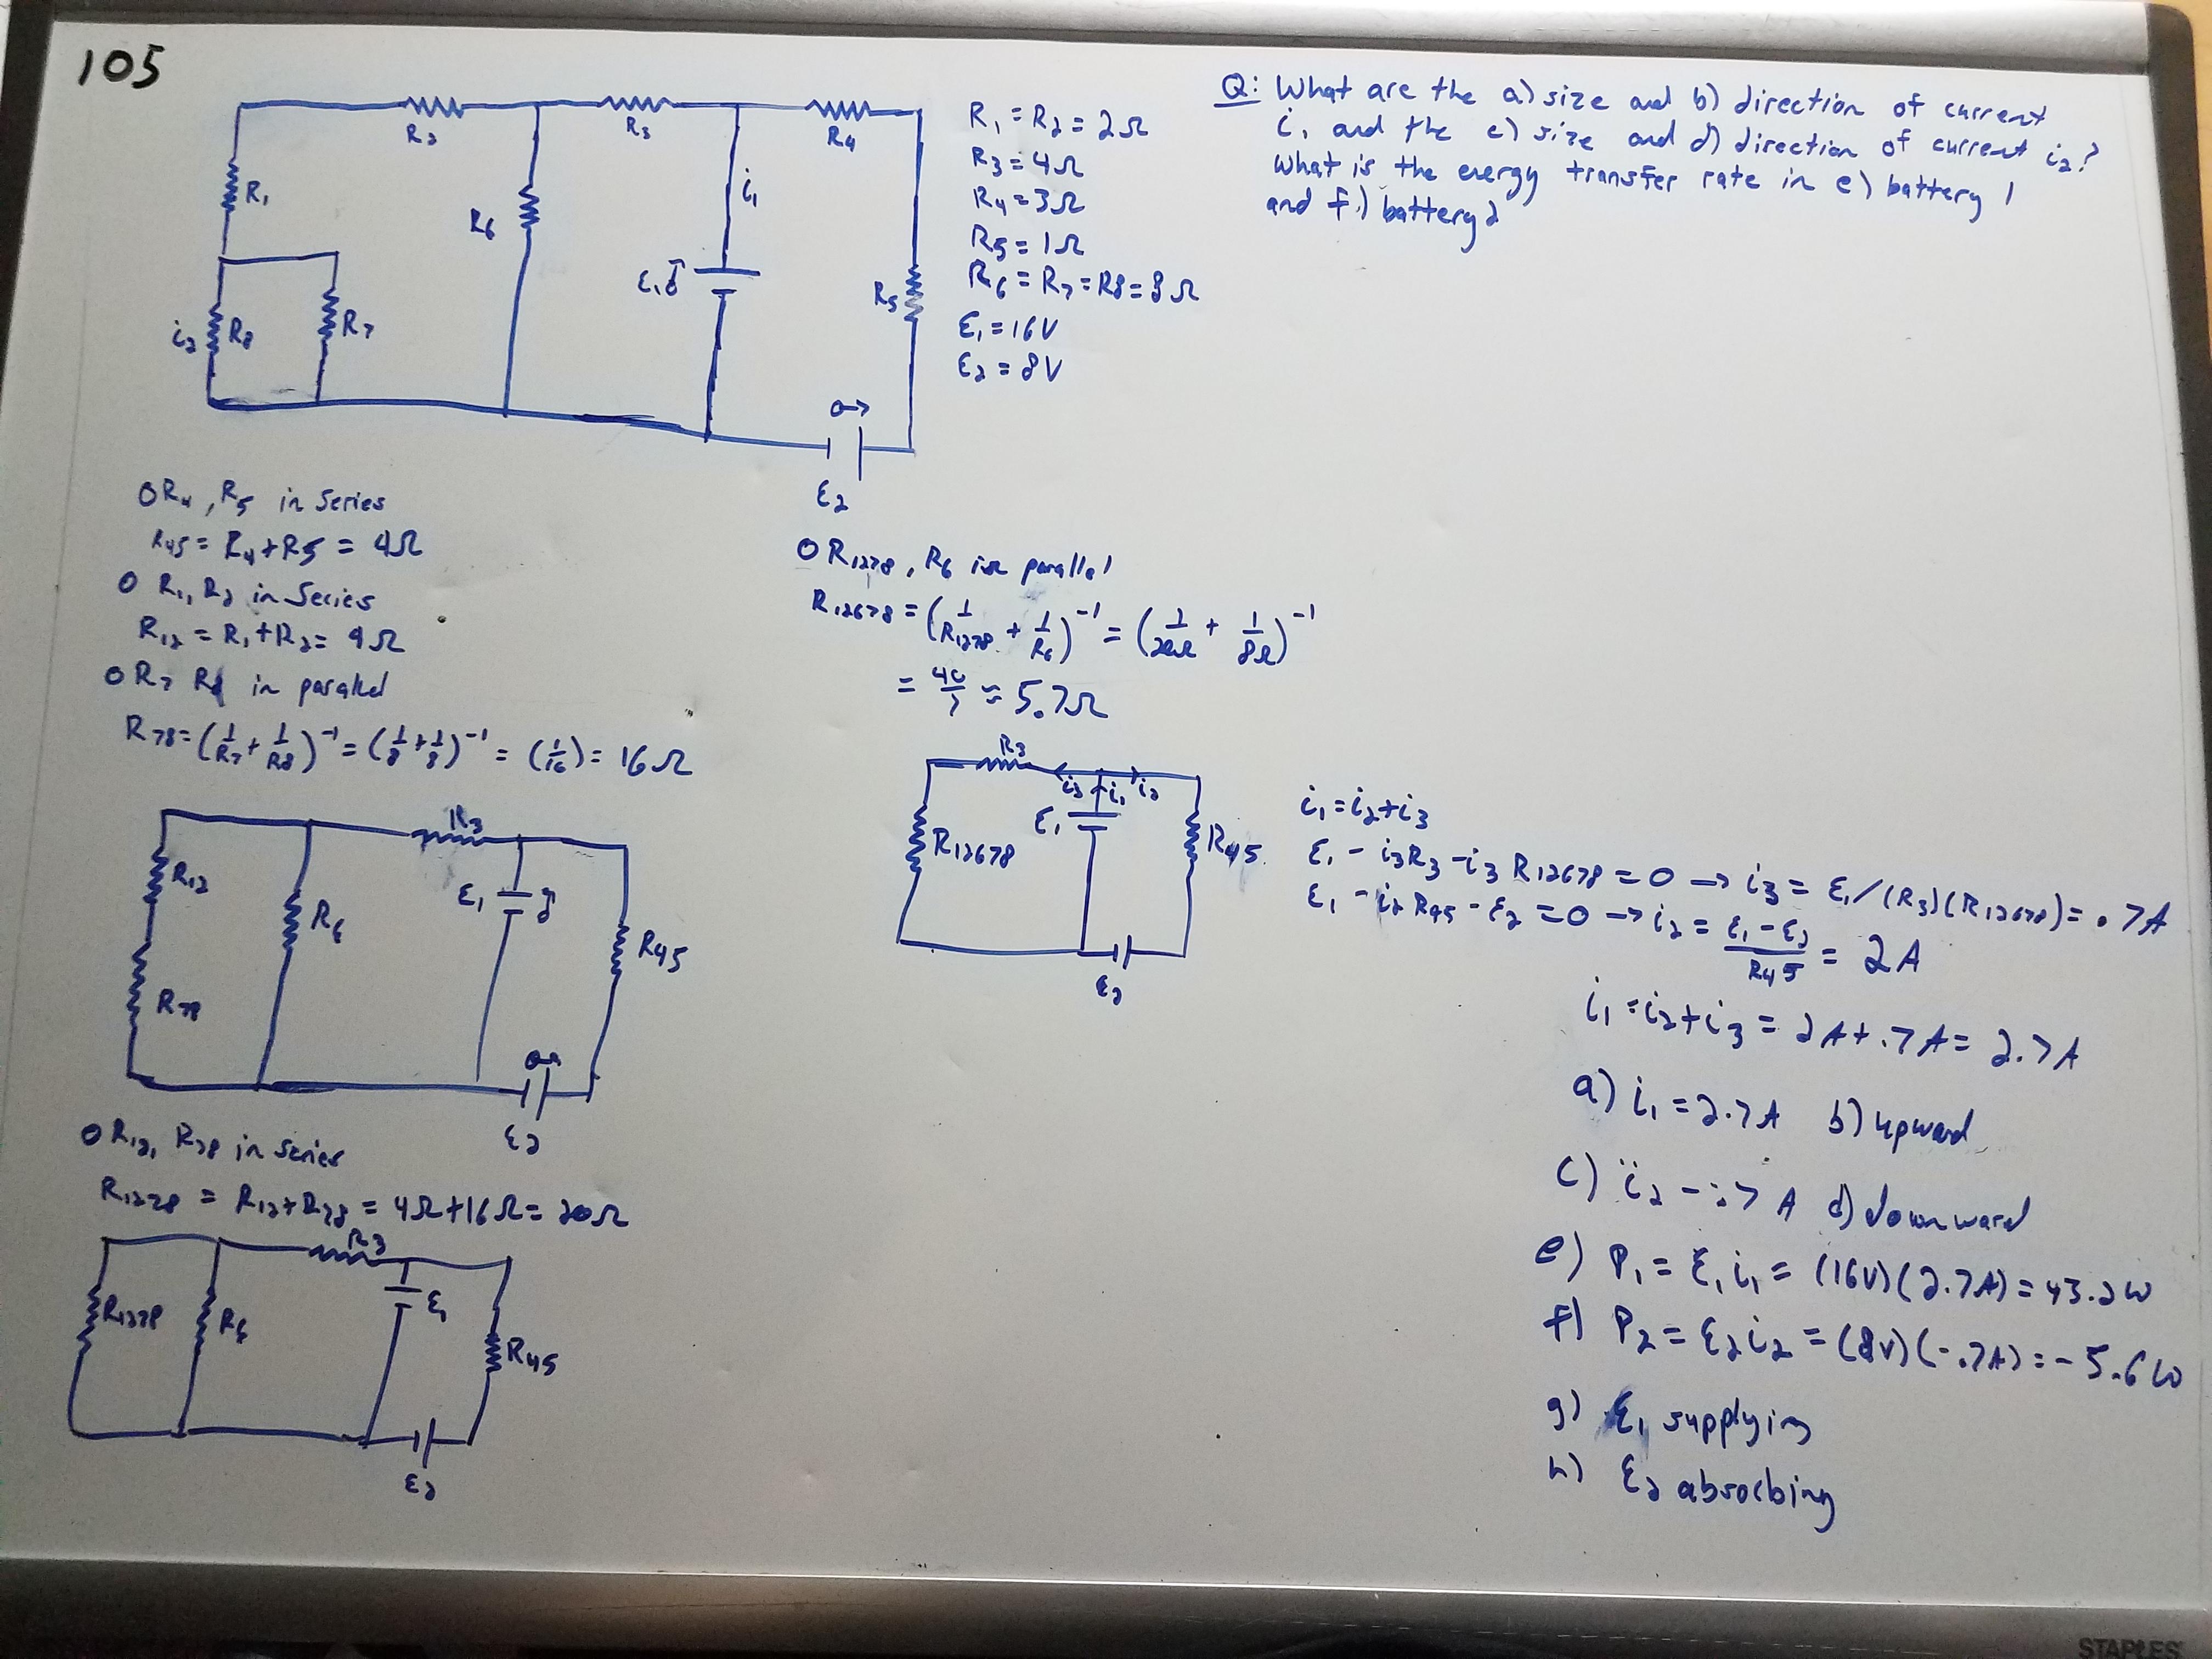 105
R₂
R₃
R₄
R₁
R₆
i₁
ε₁
R₅
i₂
R₈
R₇
ε₂
R₁ = R₂ = 2Ω
R₃ = 4Ω
R₄ = 3Ω
R₅ = 1Ω
R₆ = R₇ = R8 = 8Ω
ε₁ = 16V
ε₂ = 8V
Q: What are the a) size and b) direction of current
i₁ and the c) size and d) direction of current i₂?
What is the energy transfer rate in e) battery 1
and f.) battery 2
O R₄, R₅ in series
R₄₅ = R₄ + R5 = 4Ω
O R₁, R₂ in series
R₁₂ = R₁ + R₂ = 4Ω
O R₇ R8 in parallel
R₇₈ = (1/R₇ + 1/R8)⁻¹ = (1/8 + 1/8)⁻¹ = (1/16) = 16Ω
R₃
R₁₂
R₆
ε₁
R₄₅
R₇₈
ε₂
O R₁₂, R₇₈ in series
R₁₂₇₈ = R₁₂ + R₇₈ = 4Ω + 16Ω = 20Ω
R₃
R₁₂₇₈
R₆
ε₁
R₄₅
ε₂
O R₁₂₇₈, R₆ in parallel
R₁₂₆₇₈ = (1/R₁₂₇₈ + 1/R₆)⁻¹ = (1/20Ω + 1/8Ω)⁻¹
= 40/7 ≈ 5.7Ω
R₃
i₃ i₁ i₂
ε₁
R₁₂₆₇₈
R₄₅
ε₂
i₁ = i₂ + i₃
ε₁ - i₃R₃ - i₃ R₁₂₆₇₈ = 0 → i₃ = ε₁/(R₃)(R₁₂₆₇₈) = .7A
ε₁ - i₂ R₄₅ - ε₂ = 0 → i₂ = (ε₁ - ε₂)/R₄₅ = 2A
i₁ = i₂ + i₃ = 2A + .7A = 2.7A
a) i₁ = 2.7A b) upward
c) i₂ - .7 A d) downward
e) P₁ = ε₁ i₁ = (16V)(2.7A) = 43.2W
f) P₂ = ε₂ i₂ = (8V)(-.7A) = -5.6W
g) ε₁ supplying
h) ε₂ absorbing
STAPLES